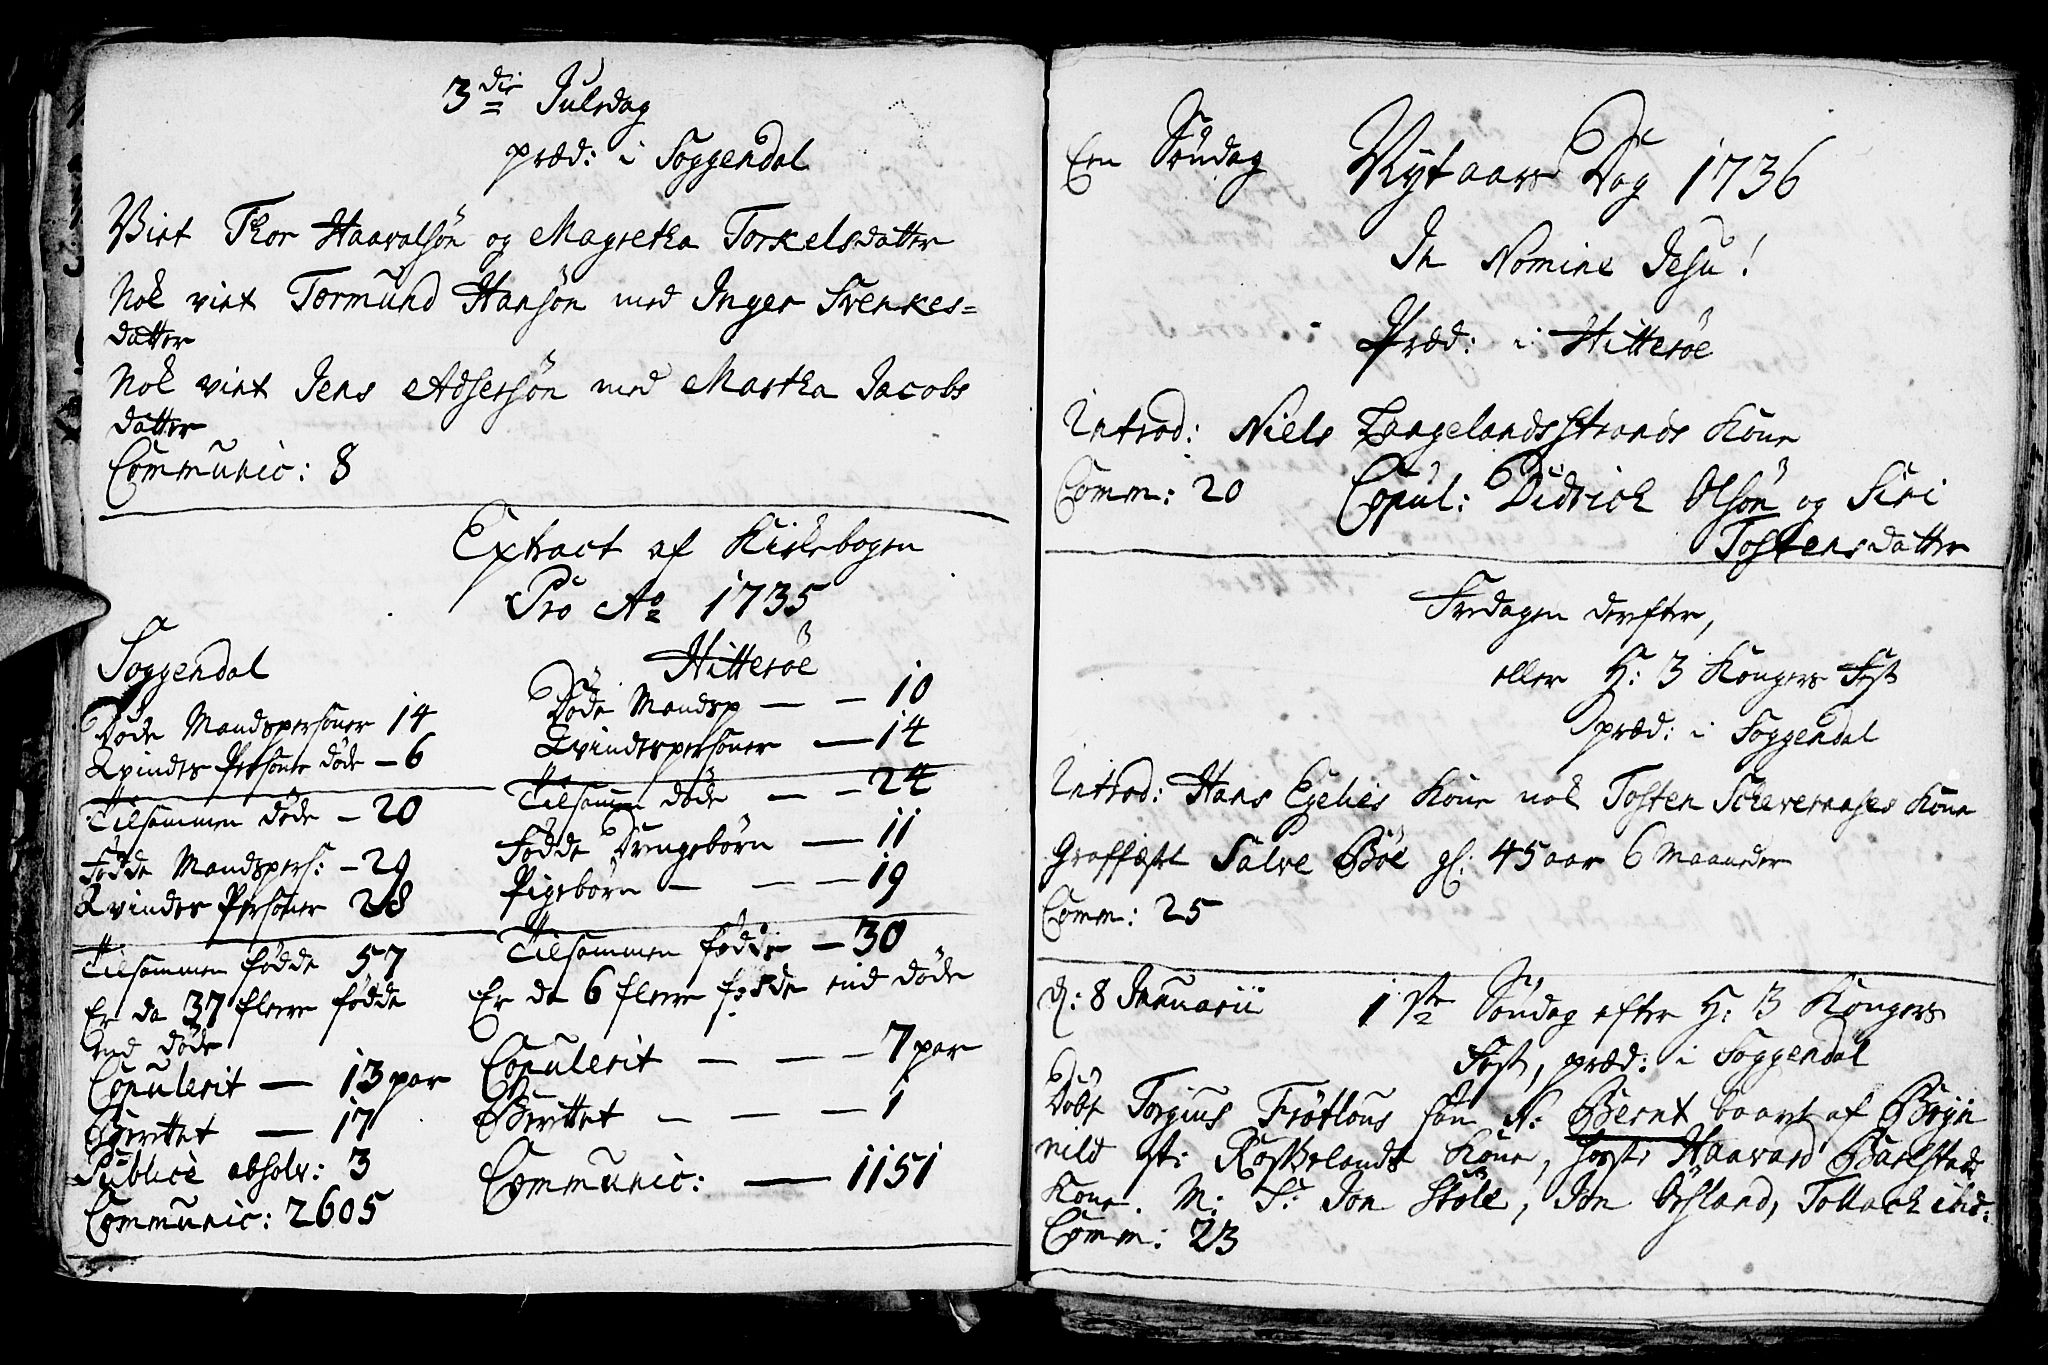 3die Juledag
præd: i Soggendal
Viet Thor Haavalsøn og Magretha Torkelsdatter
Nok viet Tormund Hansøn med Inger Svenkes=
datter
Nok viet Jens Adsersøn med Martha Jacobs
datter
Communic: 8
Extract af Kirkebogen
Pro Ao 1735
Soggendal
Døde Mandspersoner 14
Qvindes Persone døde — 6
Tilsammen døde — 20
Fødde Mandspers: — 29
Qvindes Personer 28
Tilsammen fødde 57
Er da 37 fleere fødde
end døde
Copulerit — 13 par
Berettet — 17
Publicè absolv: 3
Communic: 2605
Hitterøe
Døde Mandsp — — 10
Qvindespersoner — 14
Tilsamm døde — — 24
Fødde Drengebørn — 11
Pigebørn — — — 19
Tilsammen fødde — 30
Er da 6 fleere fødde end døde
Copulerit — — — 7 par
Berettet — — — 1
Communic: — 1151
Een Søndag Nytaars Dag 1736
In Nomine Jesu!
Præd: i Hitterøe
Introd: Niels Langelandsstrands Kone
Comm: 20 Copul: Didrich Olsøn og Siri
Tostensdatter
Fredagen derefter,
eller H: 3 Kongers Fest
præd: i Soggendal
Introd: Hans Egelies Kone nok Tosten Schevernases Kone
Graffæst Salve Bøe gl: 45 aar 6 Maaneder
Comm: 25
d: 8 Januarii 1ste Søndag efter H: 3 Kongers
Fest, præd: i Soggendal
Døbt Torgius Frøtlous søn N: Bernt baaret af Bryn
nild Kone, Haavard Barlstads
Kone. M: S: Jon Støle, Jon Øesland, Tollach ibd:
Comm: 23